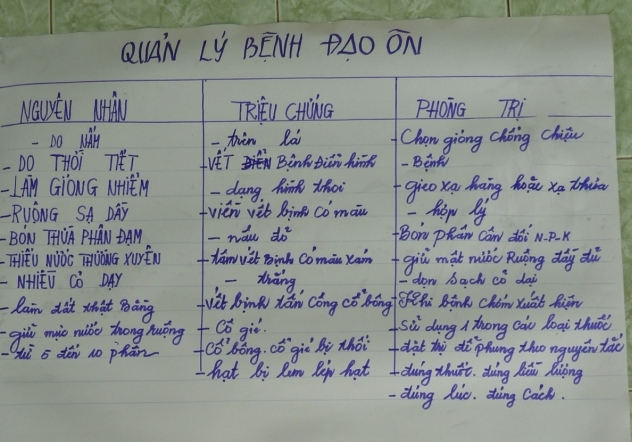 QUẢN LÝ BỆNH ĐẠO ÔN
NGUYÊN NHÂN
- DO NẤM
- DO THỜI TIẾT
- LÀM GIỐNG NHIỄM
- RUỘNG SẠ DÀY
- BÓN THỪA PHÂN ĐẠM
- THIẾU NƯỚC THƯỜNG XUYÊN
- NHIỀU CỎ DẠY
- làm đất thật Bằng
- giữ mực nước trong ruộng
- từ 5 đến 10 phân
TRIỆU CHỨNG
- trên lá
- VẾT Bệnh Điển hình
- dạng hình thoi
- viền vết bịnh có màu
- nâu đỏ
- tâm vết Bịnh có màu xám
- trắng
- vết bịnh tấn công cổ bông
- Cổ gié.
- cổ bông. cổ gié bị thối
- hạt bị lem lép hạt
PHÒNG TRỊ
- Chọn giống chống chịu
- Bệnh
- gieo xạ hàng hoặc xạ thưa
- hợp lý
- Bón phân cân đối N-P-K
- giữ mặt nước Ruộng đầy đủ
- dọn sạch cỏ dại
- Khi bệnh chớm xuất hiện
- sử dụng 1 trong các loại thuốc
- đặt trị để phung theo nguyên tắc
- đúng thuốc. đúng liều lượng
- đúng lúc. đúng cách.